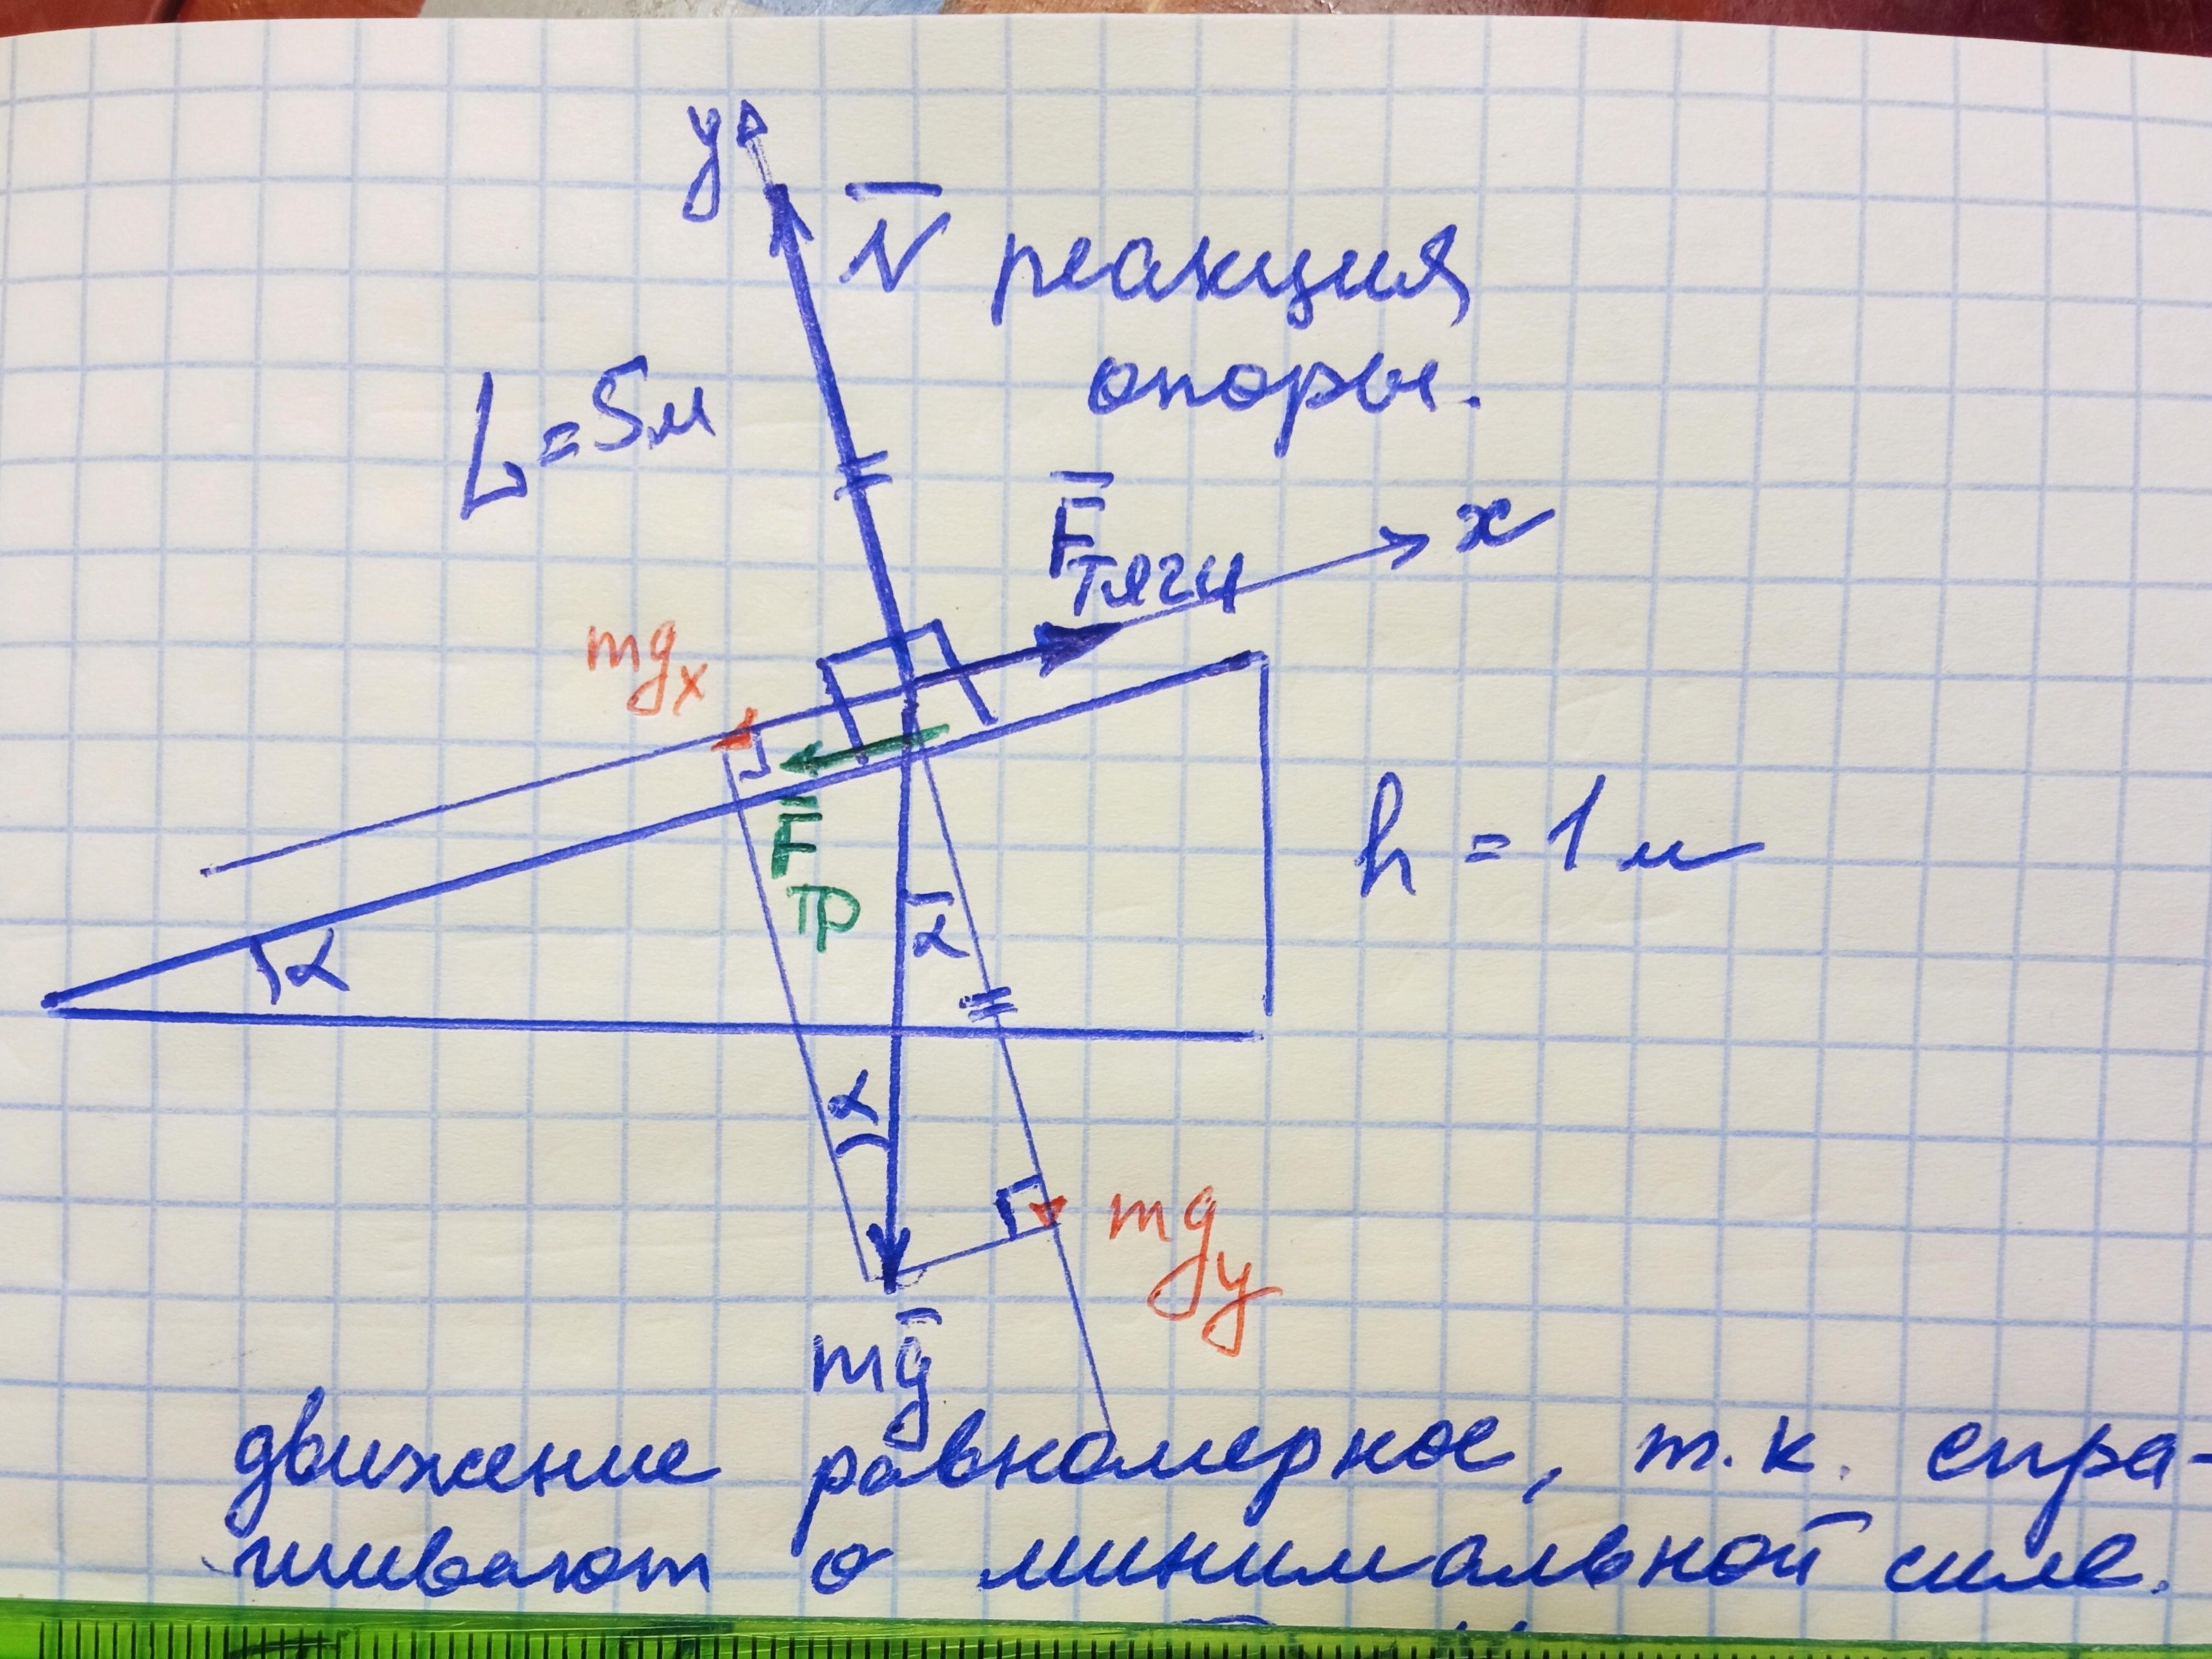 y
N̅ реакция
опоры.
L=5м
F̅тяги
x
mgx
F̅тр
h = 1м
α
α
α
mgy
mg̅
движение равномерное, т.к. спра-
шивают о минимальной силе.